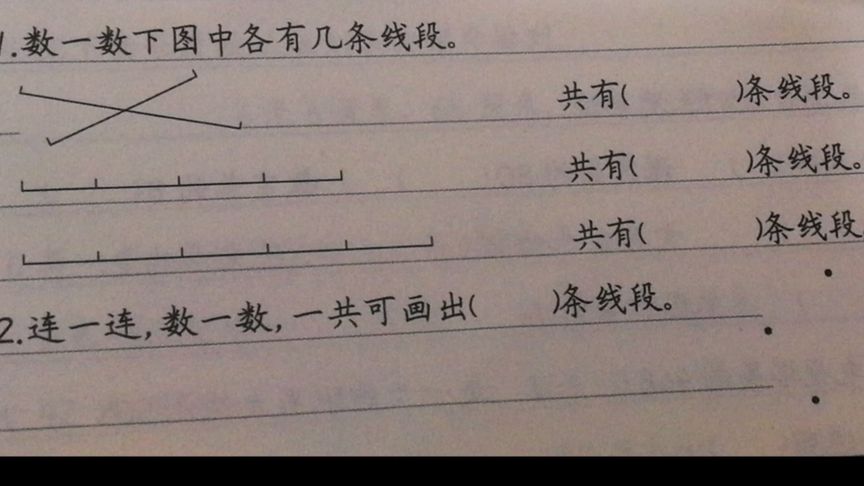 1.数一数下图中各有几条线段。
共有( )条线段。
共有( )条线段。
共有( )条线段
2.连一连,数一数,一共可画出( )条线段。